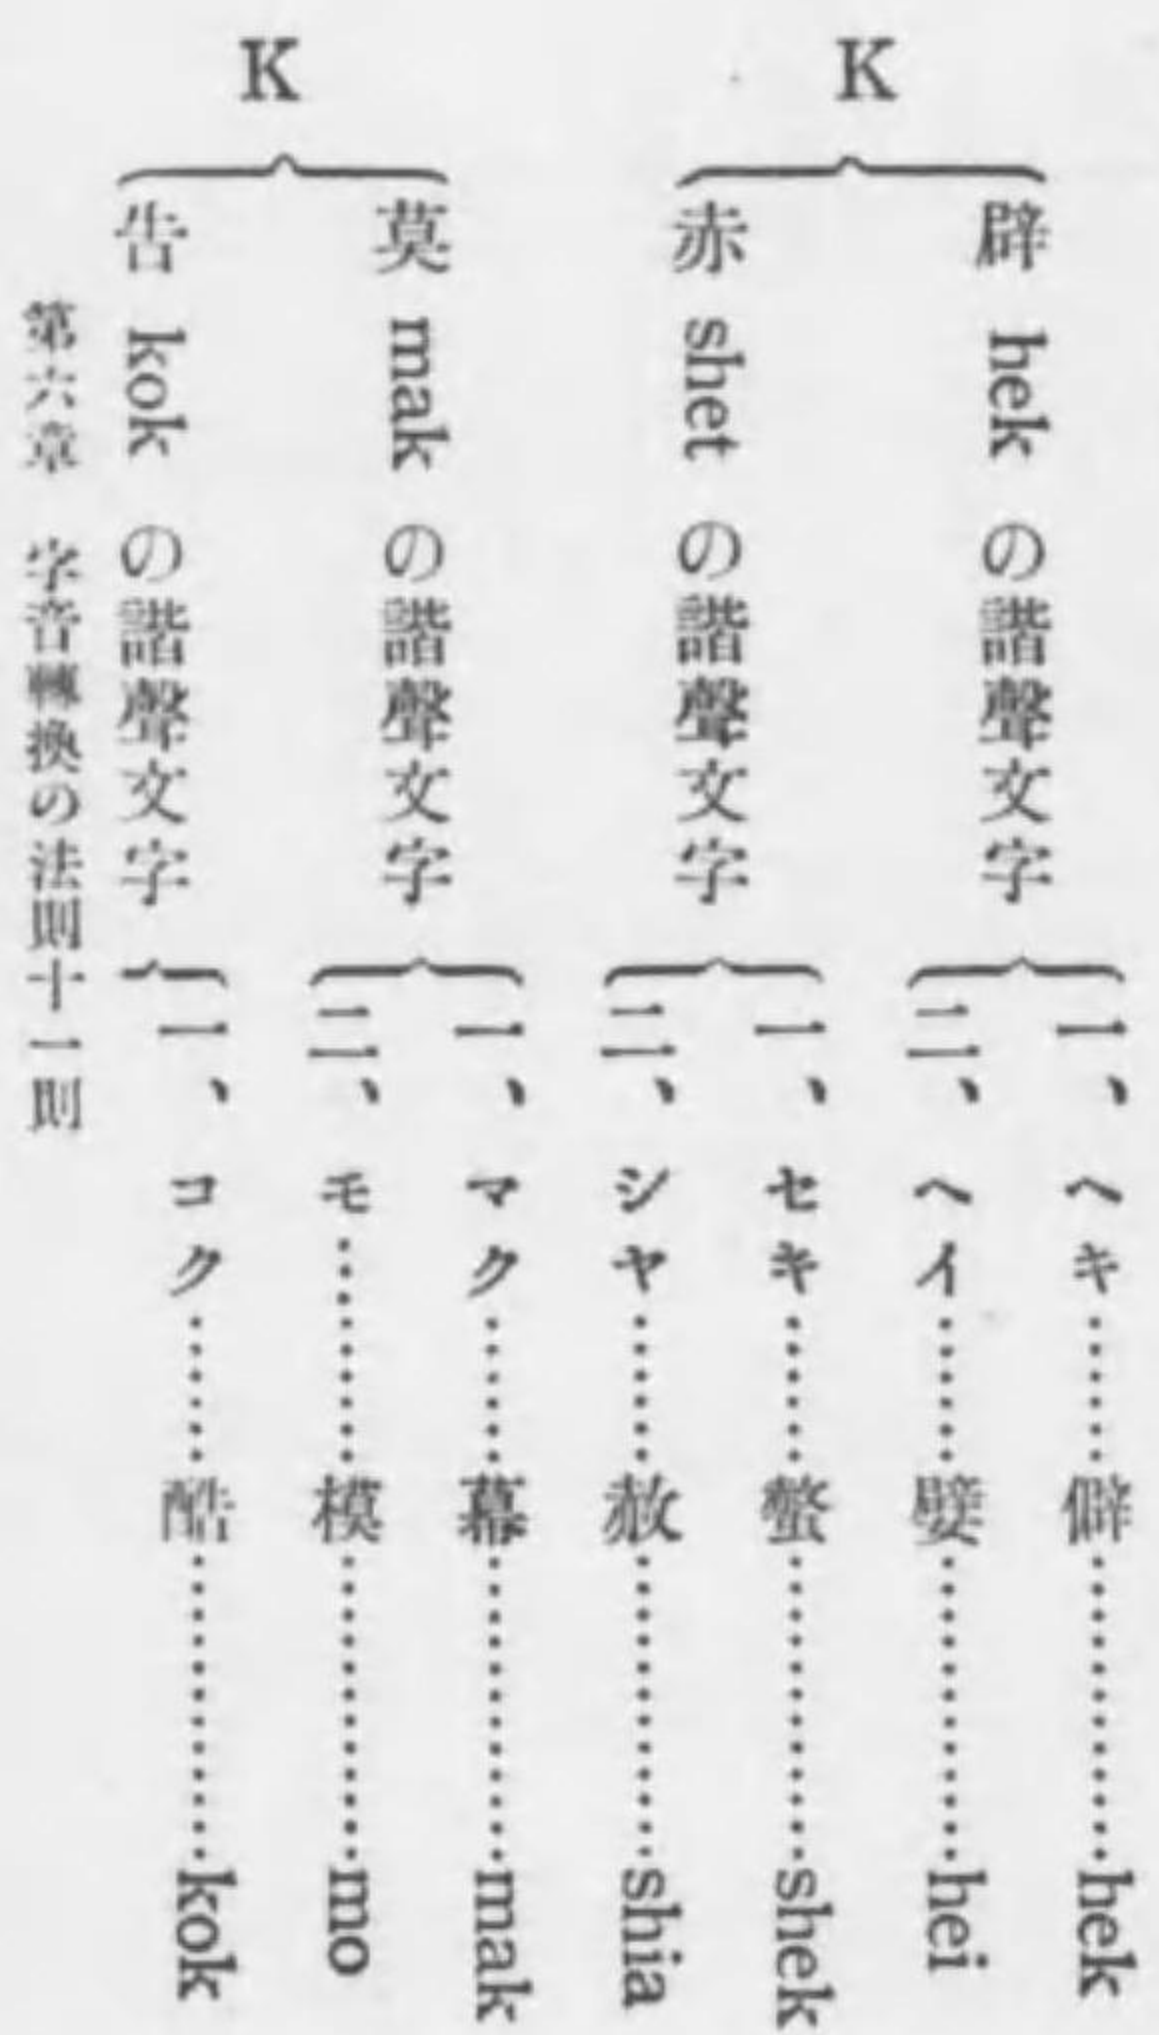 K
辟 hek の諧聲文字
一、ヘキ……僻…………hek
二、ヘイ……嬖…………hei
赤 shet の諧聲文字
一、セキ……螫…………shek
二、シヤ……赦…………shia
K
莫 mak の諧聲文字
一、マク……幕…………mak
二、モ………模…………mo
告 kok の諧聲文字
一、コク……酷…………kok
第六章 字音轉換の法則十一則